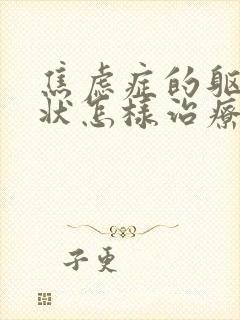 焦虑症的躯
状怎样治疗
子更